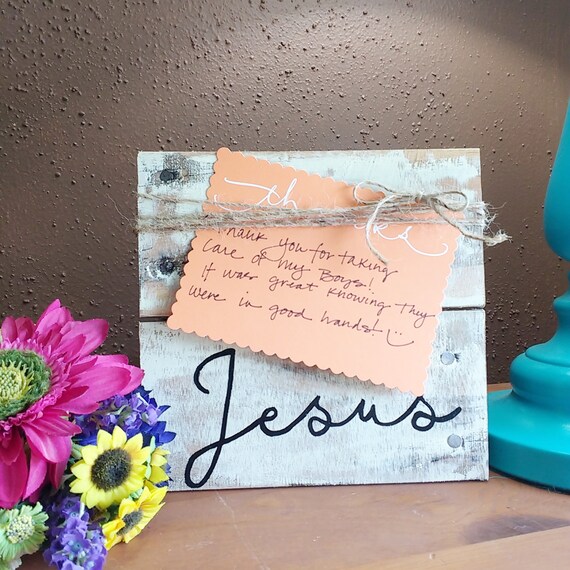 thanks
Thank you for taking
care of my Boys!
It was great knowing they
were in good hands!
Jesus